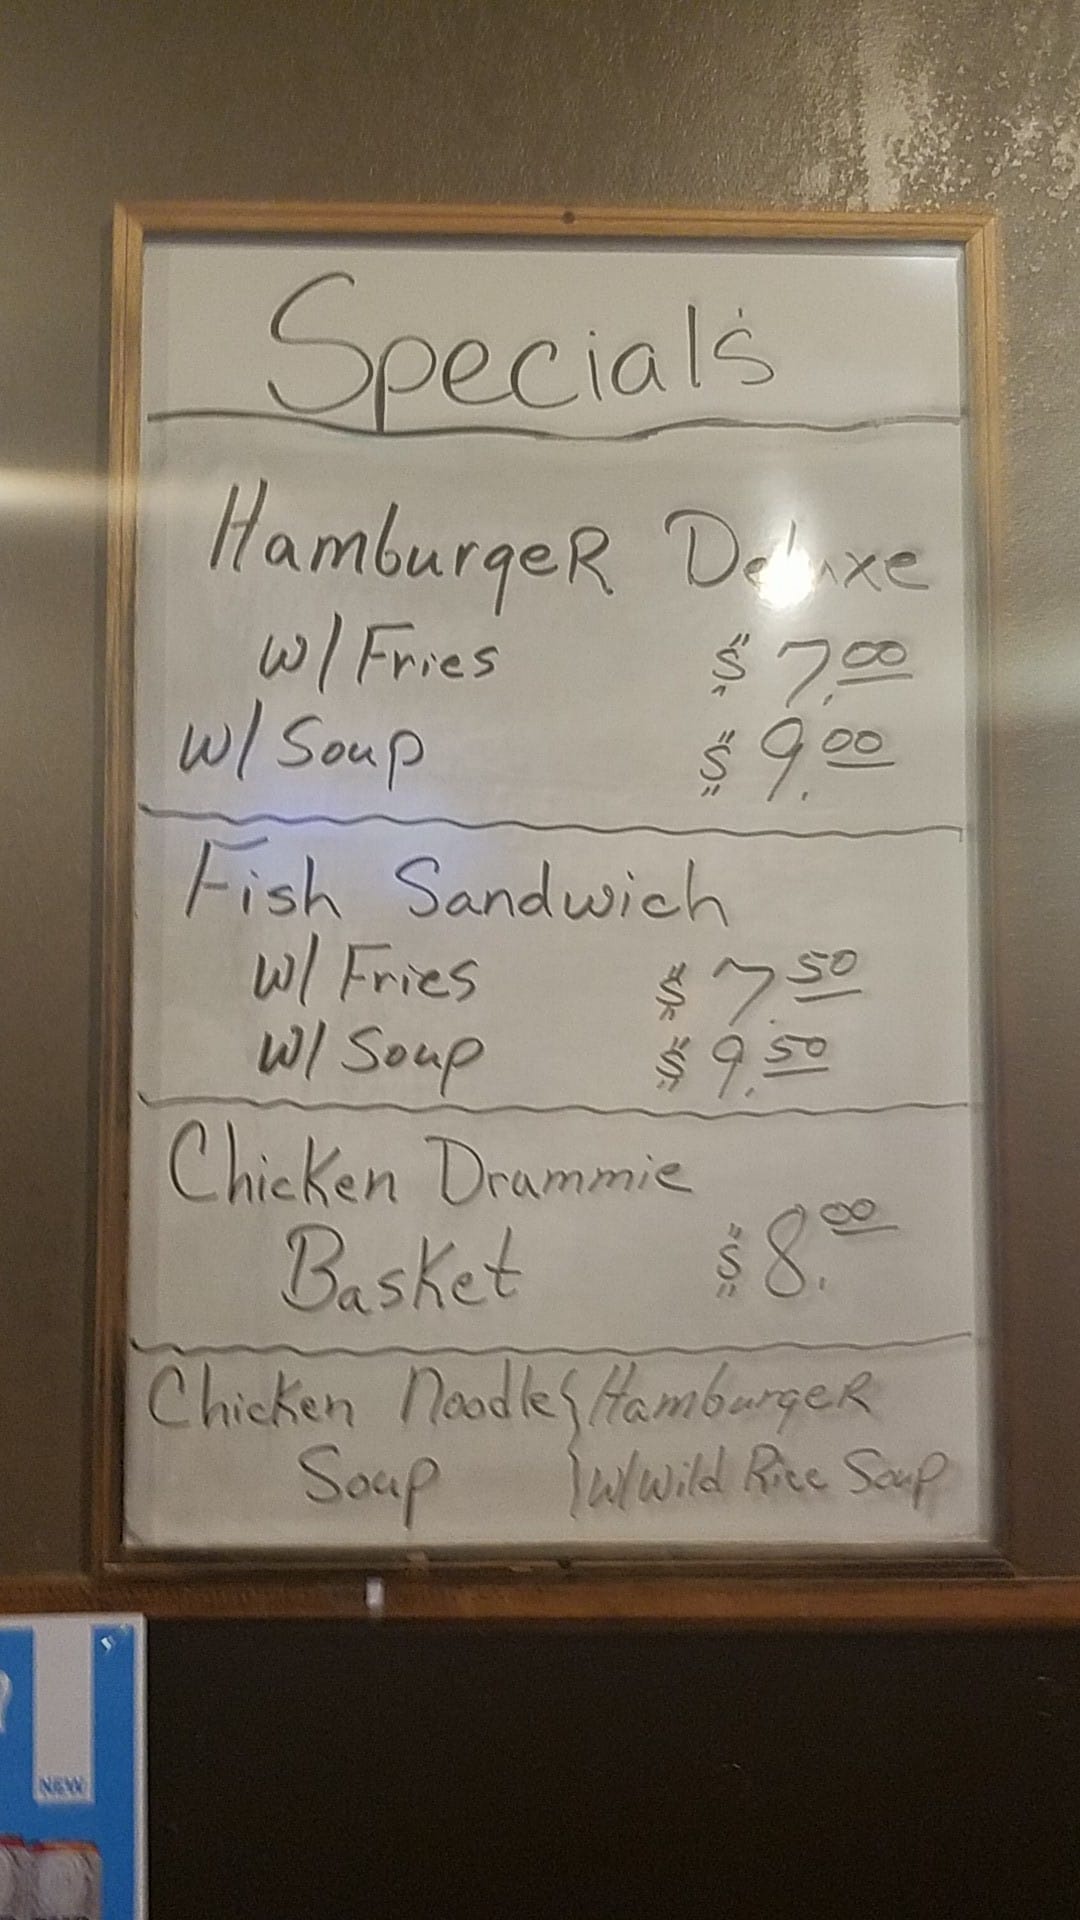 Special's
HamburgeR Deluxe
w/ Fries $7.00
w/ Soup $9.00
Fish Sandwich
w/ Fries $7.50
w/ Soup $9.50
Chicken Drammie
Basket $8.00
Chicken Noodle } HamburgeR
Soup } w/ Wild Rice Soup
NEW